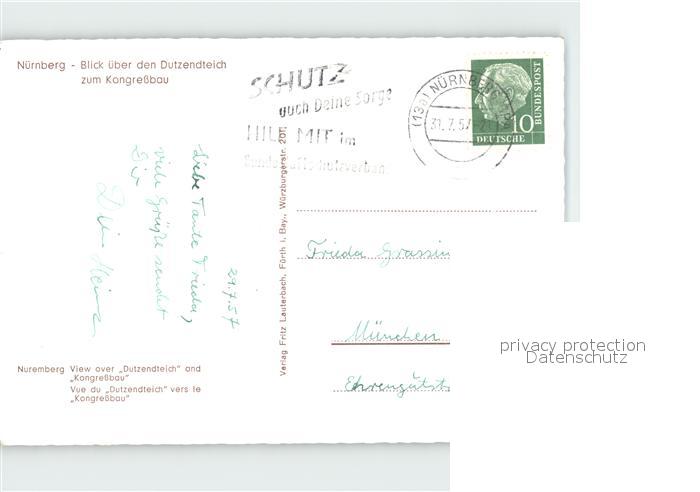 Nürnberg - Blick über den Dutzendteich
zum Kongreßbau
SCHUTZ
auch Deine Sorge
HILF MIT im
Bundesluftschutzverband
(13a) NÜRNBERG
31.7.57
10
DEUTSCHE
BUNDESPOST
29.7.57
Liebe Tante Frieda,
viele Grüße sendet
Dir
Dein Heinz
Verlag Fritz Lauterbach, Fürth i. Bay., Würzburgerstr. 20
Frieda Grassin
München
Ehrengutst
Nuremberg View over „Dutzendteich" and
„Kongreßbau"
Vue du „Dutzendteich" vers le
„Kongreßbau"
privacy protection
Datenschutz